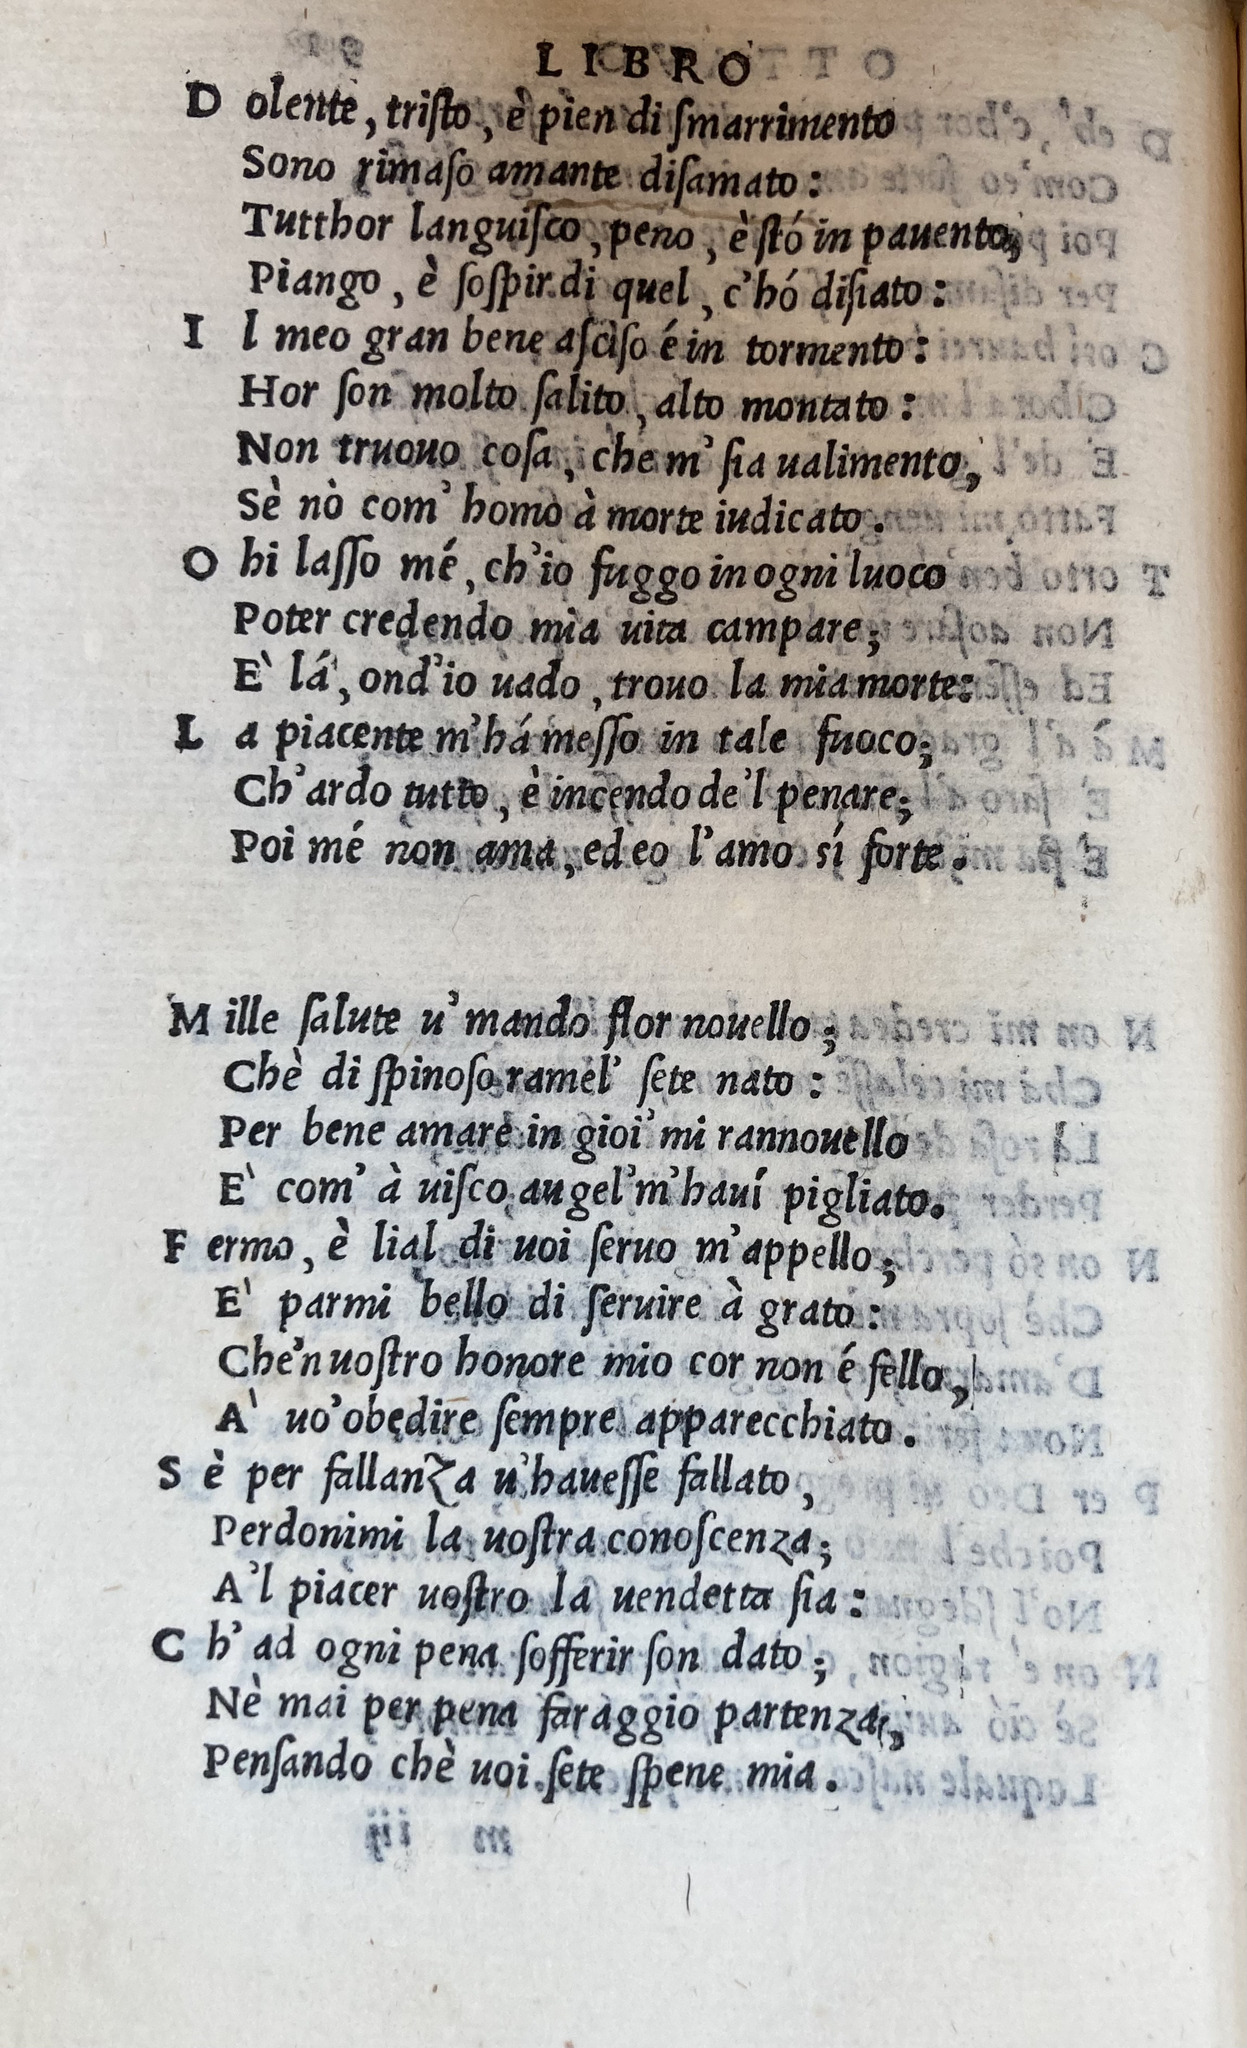 LIBRO
Dolente, tristo, è pien di ſmarrimento
Sono rimaſo amante diſamato:
Tutthor languiſco, peno, è stó in pauento,
Piango, è ſoſpir di quel, c'hó diſiato:
Il meo gran bene aſciſo é in tormento:
Hor ſon molto ſalito, alto montato:
Non truouo coſa, che m'ſia ualimento,
Sè nò com' homo à morte iudicato.
Ohi laſſo mé, ch'io fuggo in ogni luoco
Poter credendo mia uita campare;
E' lá, ond'io uado, trouo la mia morte:
La piacente m'há meſſo in tale fuoco;
Ch'ardo tutto, è incendo de'l penare;
Poi mé non ama, ed eo l'amo sí forte.
Mille ſalute u'mando flor nouello;
Chè di ſpinoſo ramel' ſete nato:
Per bene amare in gioi' mi rannouello
E' com' à uiſco augel'm'hauí pigliato.
Fermo, è lial di uoi ſeruo m'appello;
E' parmi bello di ſeruire à grato:
Che'n uoſtro honore mio cor non é fello,
A' uo'obedire ſempre apparecchiato.
Sè per fallanza u'haueſſe fallato,
Perdonimi la uoſtra conoſcenza;
A'l piacer uoſtro la uendetta ſia:
Ch'ad ogni pena ſofferir ſon dato;
Nè mai per pena faraggio partenza,
Penſando chè uoi ſete ſpene mia.